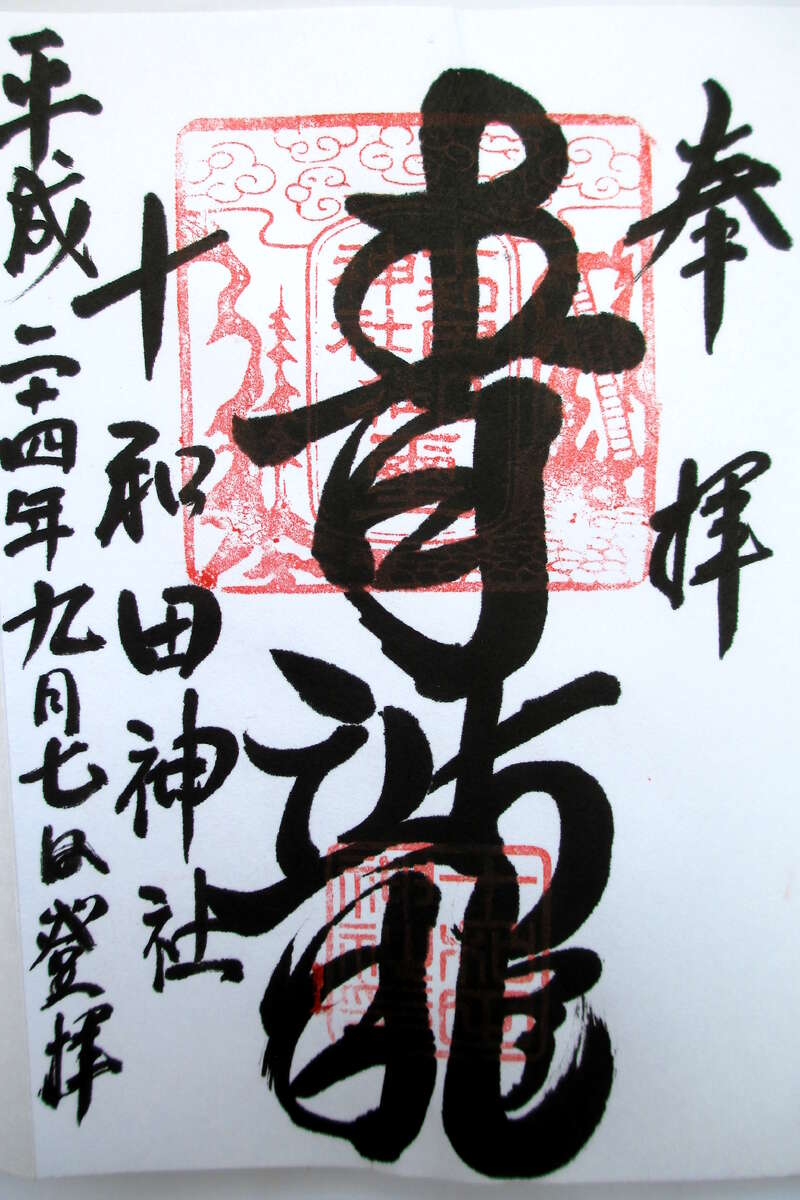 奉拝
青龍
十和田神社
平成二十四年九月七日登拝